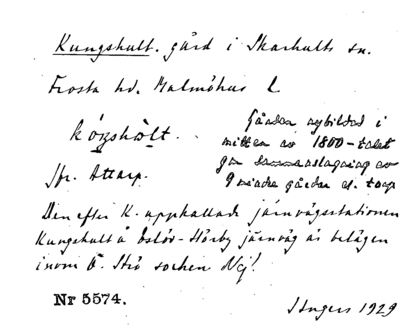 Kungshult. gård i Skarhults sn.
Frosta hd. Malmöhus L
Gården nybildad i
mitten av 1800-talet
gm sammanslagning av
9 mindre gårdar el. torp
Jfr. Attarp.
Den efter K. uppkallade järnvägsstationen
Kungshult å Eslöv-Hörby järnväg är belägen
inom Ö. Strö socken Nej!
Nr 5574.
Ingers 1929